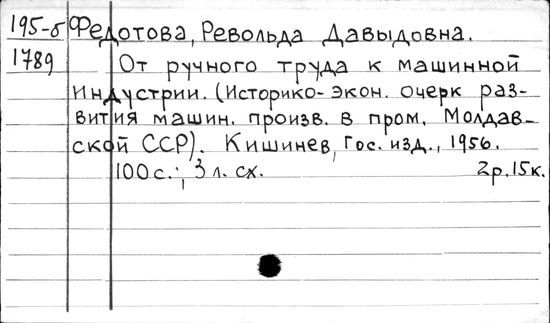 195-б Федотова, Револьда Давыдовна.
1789 От ручного труда к машинной
индустрии. (Историко-экон. очерк раз-
вития машин. произв. в пром. Молдав-
ской ССР). Кишинев, Гос. изд., 1956.
100 с.; 3 л. сх. 2р.15к.